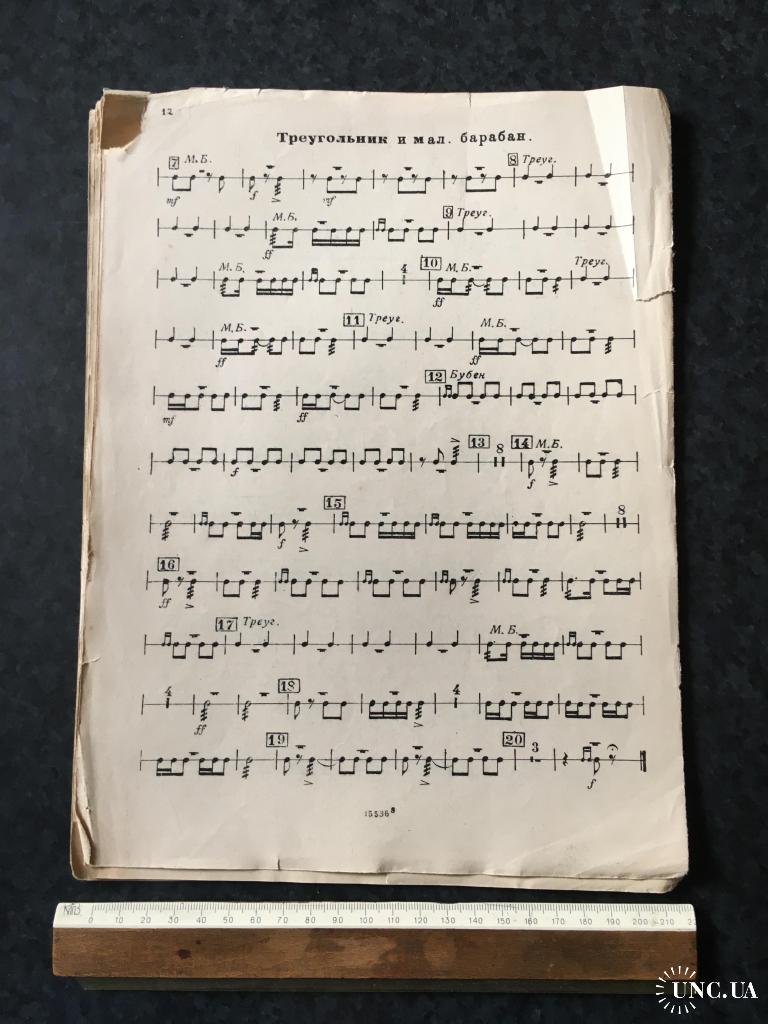 12
Треугольник и мал. барабан.
7 М.Б. 8 Треуг.
mf f mf
М.Б. 9 Треуг.
ff
М.Б. 4 10 М.Б. Треуг.
ff
М.Б. 11 Треуг. М.Б.
ff ff
12 Бубен
mf ff
13 8 14 М.Б.
f f
15 8
f
16
ff
17 Треуг. М.Б.
4 18 4
ff
19 20 3
f
15536 8
0 10 20 30 40 50 60 70 80 90 100 110 120 130 140 150 160 170 180 190 200 210
UNC.UA